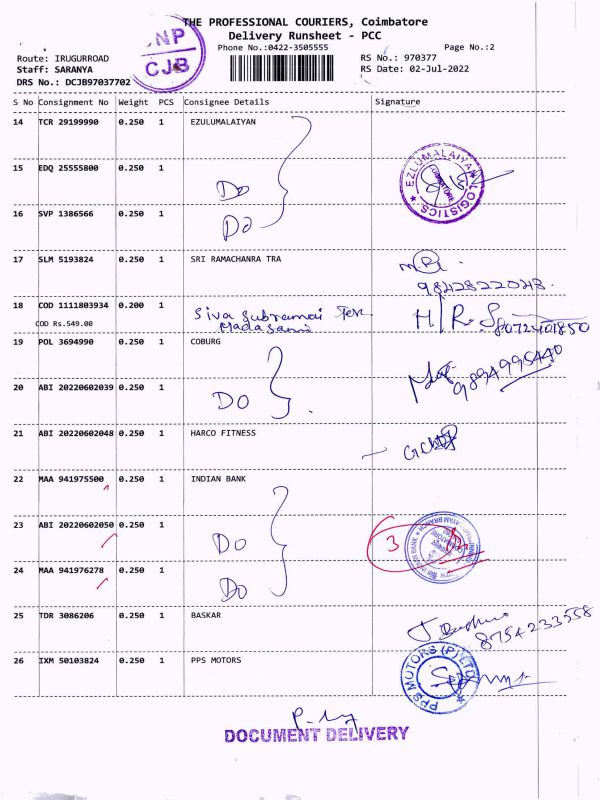 THE PROFESSIONAL COURIERS, Coimbatore
Delivery Runsheet - PCC
NP
CJB
Phone No.:0422-3505555
Page No.:2
Route: IRUGURROAD
RS No.: 970377
Staff: SARANYA
RS Date: 02-Jul-2022
DRS No.: DCJB97037702
S No Consignment No Weight PCS Consignee Details Signature
14 TCR 29199990 0.250 1 EZULUMALAIYAN
15 EDQ 25555800 0.250 1
Do
EZLUMALAIYAN LOGISTICS
COIMBATORE
16 SVP 1386566 0.250 1
Do
17 SLM 5193824 0.250 1 SRI RAMACHANRA TRA
9842822043
18 COD 1111803934 0.200 1 Siva Subramai
COD Rs.549.00 Madasami
H/R. 8072401850
19 POL 3694990 0.250 1 COBURG
9894995440
20 ABI 20220602039 0.250 1 DO
21 ABI 20220602048 0.250 1 HARCO FITNESS
22 MAA 941975500 0.250 1 INDIAN BANK
23 ABI 20220602050 0.250 1 Do
3
INDIAN BANK
24 MAA 941976278 0.250 1 Do
25 TDR 3086206 0.250 1 BASKAR
8754233558
26 IXM 50103824 0.250 1 PPS MOTORS
PPS MOTORS (P) LTD
DOCUMENT DELIVERY